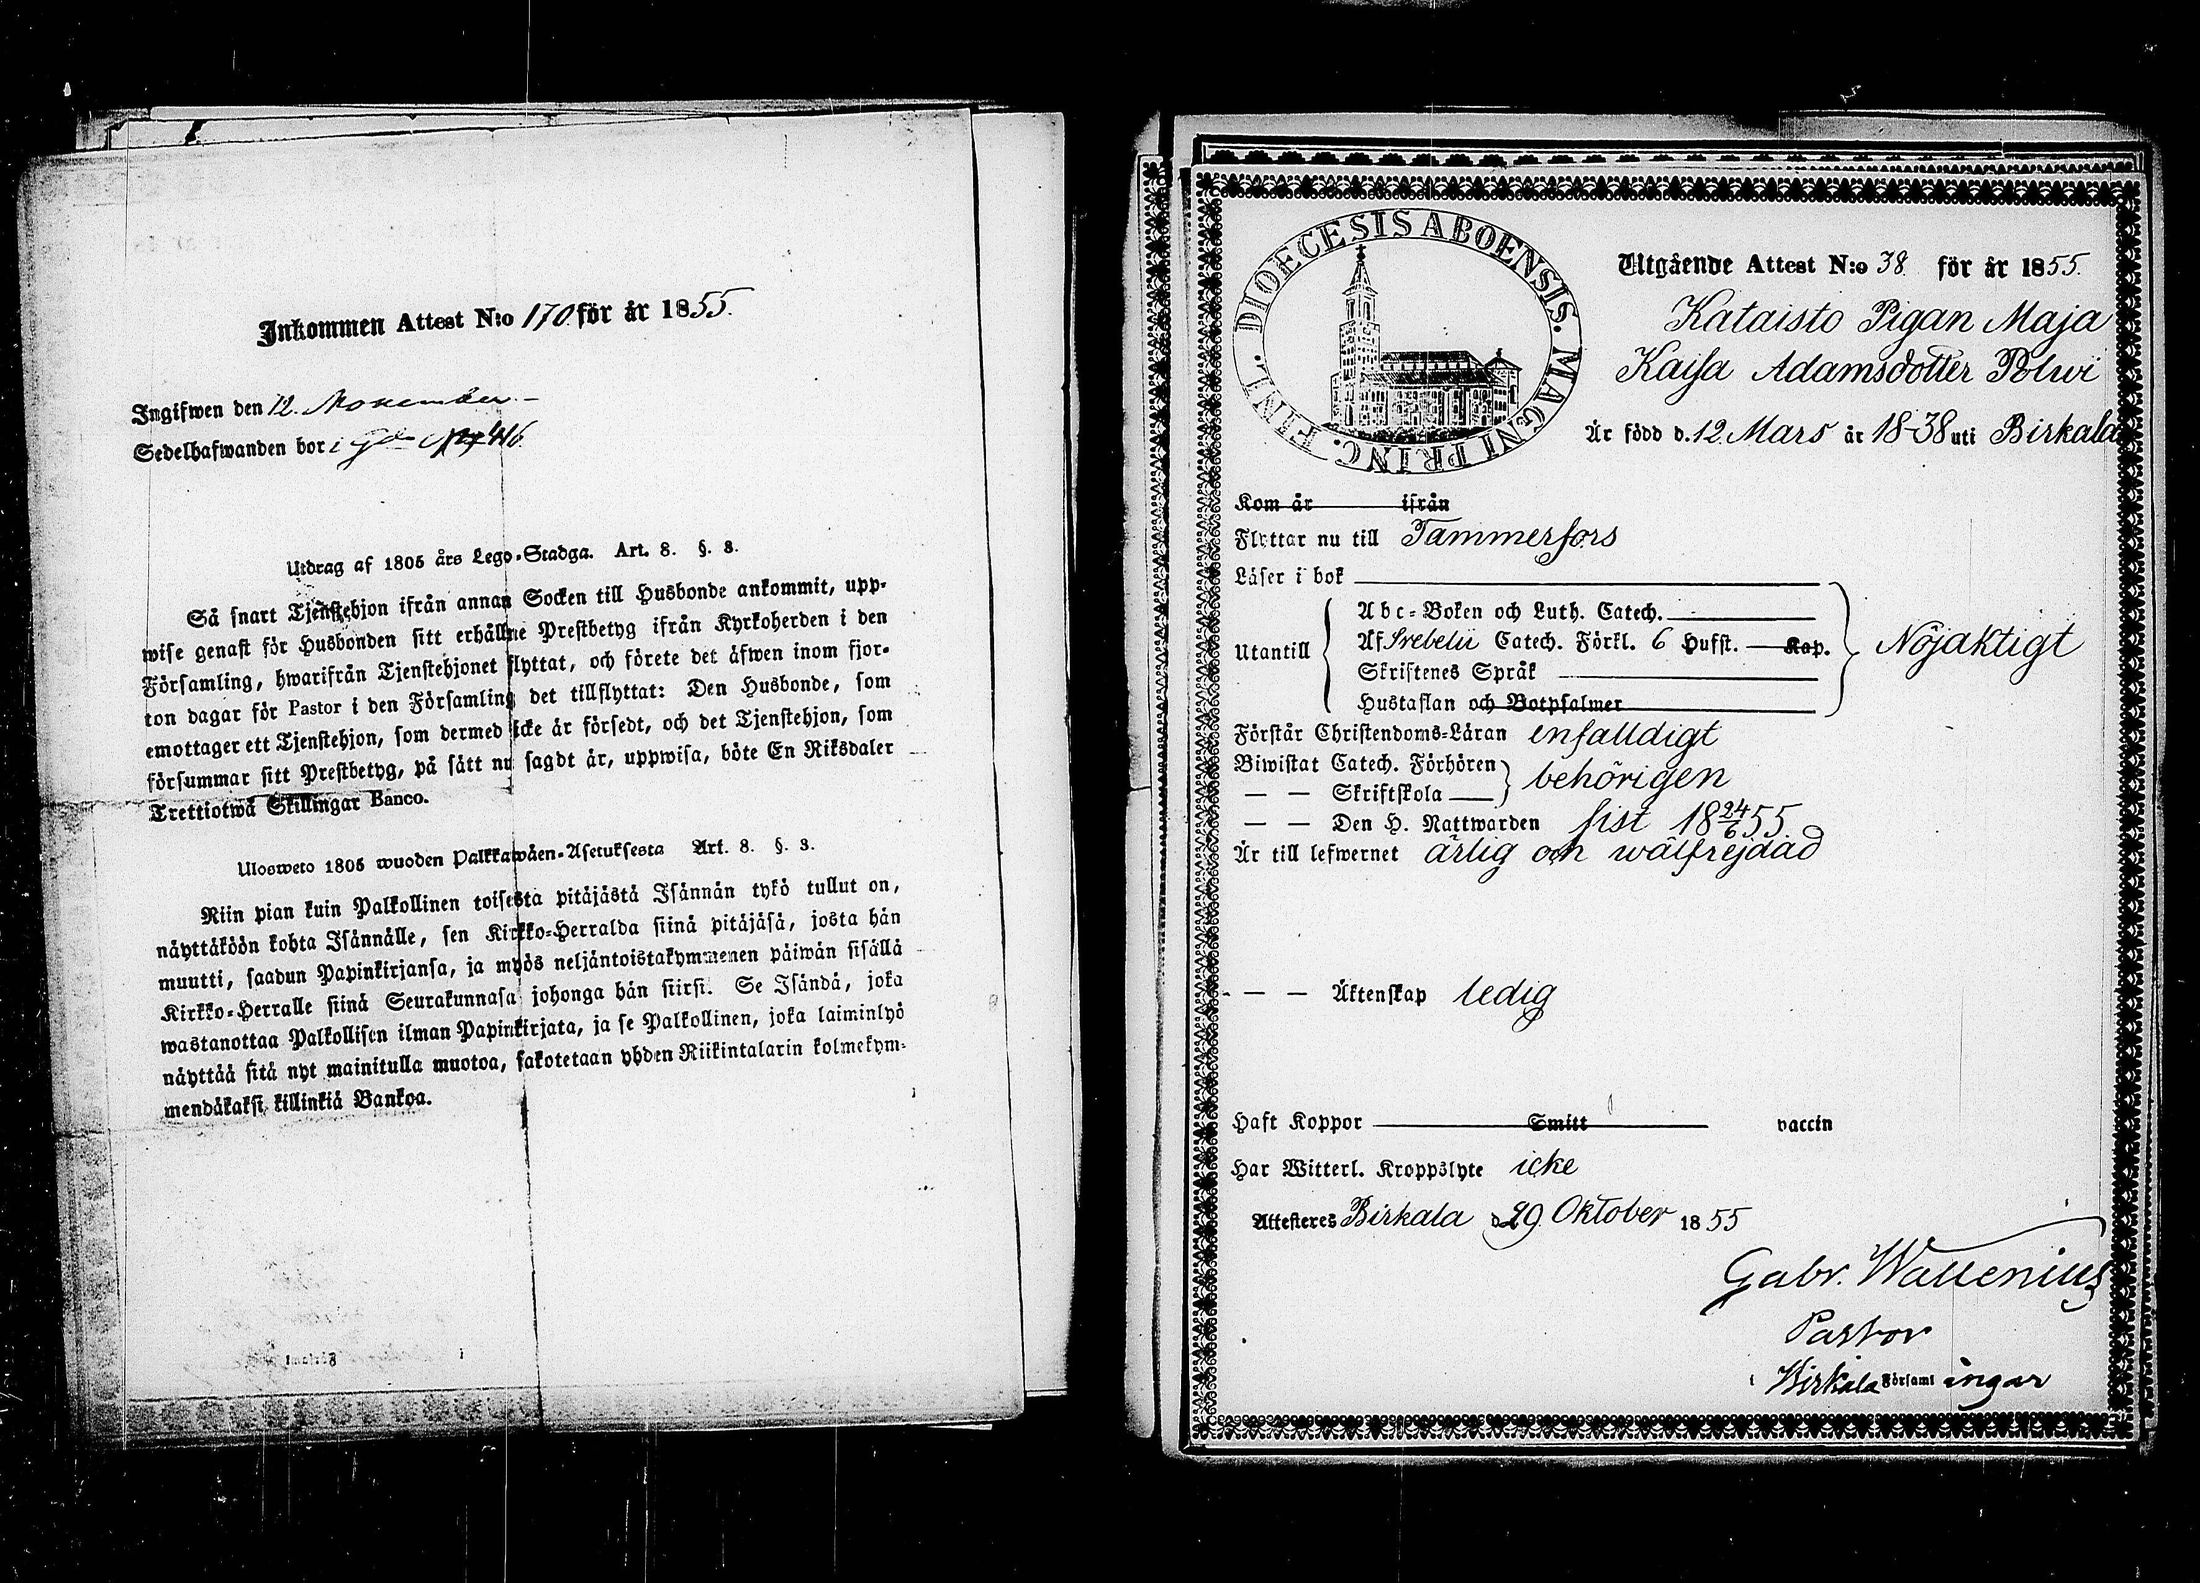 Inkommen Attest N:o 170 för år 1855.
Ingifwen den 12. November.
Sedelhafwanden bor i Gd 116.
Utdrag af 1805 års Lego-Stadga. Art. 8. §. 3.
Så snart Tjenstehjon ifrån annan Socken till Husbonde ankommit, upp-
wise genast för Husbonden sitt erhållne Prestbetyg ifrån Kyrkoherden i den
Församling, hwarifrån Tjenstehjonet flyttat, och förete det äfwen inom fjor-
ton dagar för Pastor i den Församling det tillflyttat: Den Husbonde, som
emottager ett Tjenstehjon, som dermed icke är försedt, och det Tjenstehjon, som
försummar sitt Prestbetyg, på sätt nu sagdt är, uppwisa, böte En Riksdaler
Trettiotwå Skillingar Banco.
Ulosweto 1805 wuoden Palkkawäen-Asetuksesta Art. 8. §. 3.
Niin pian kuin Palkollinen toisesta pitäjästä Isännän tykö tullut on,
näyttäköön kohta Isännälle, sen Kirkko-Herralda siinä pitäjäsä, josta hän
muutti, saadun Papinkirjansa, ja myös neljäntoistakymmenen päiwän sisällä
Kirkko-Herralle siinä Seurakunnasa johonga hän siirsi. Se Isändä, joka
wastanottaa Palkollisen ilman Papinkirjata, ja se Palkollinen, joka laiminlyö
näyttää sitä nyt mainitulla muotoa, sakotetaan yhden Riikintalarin kolmekym-
mendäkaksi killinkiä Bankoa.
DIOECESIS ABOENSIS. MAGNI PRINC. FINL.
Utgående Attest N:o 38 för år 1855.
Kataisto Pigan Maja
Kajsa Adamsdotter Polwi
Är född d. 12 Mars år 18-38 uti Birkala
Kom år ifrån
Flyttar nu till Tammerfors
Läser i bok
Abc-Boken och Luth. Catech.
Utantill Af Svebelii Catech. Förkl. 6 Hufst. Kap. Nöjaktigt
Skriftenes Språk
Hustaflan och Botpsalmer
Förstår Christendoms-Läran enfalldigt
Biwistat Catech. Förhören behörigen
— — Skriftskola
— — Den H. Nattwarden sist 18 24/6 55
Är till lefwernet ärlig och wälfrejdad
— — Äktenskap ledig
Haft Koppor Smitt vaccin
Har Witterl. Kroppslyte icke
Attesteres Birkala d. 29 Oktober 1855
Gabr. Wallenius
Pastor
i Birkala Församl ingar